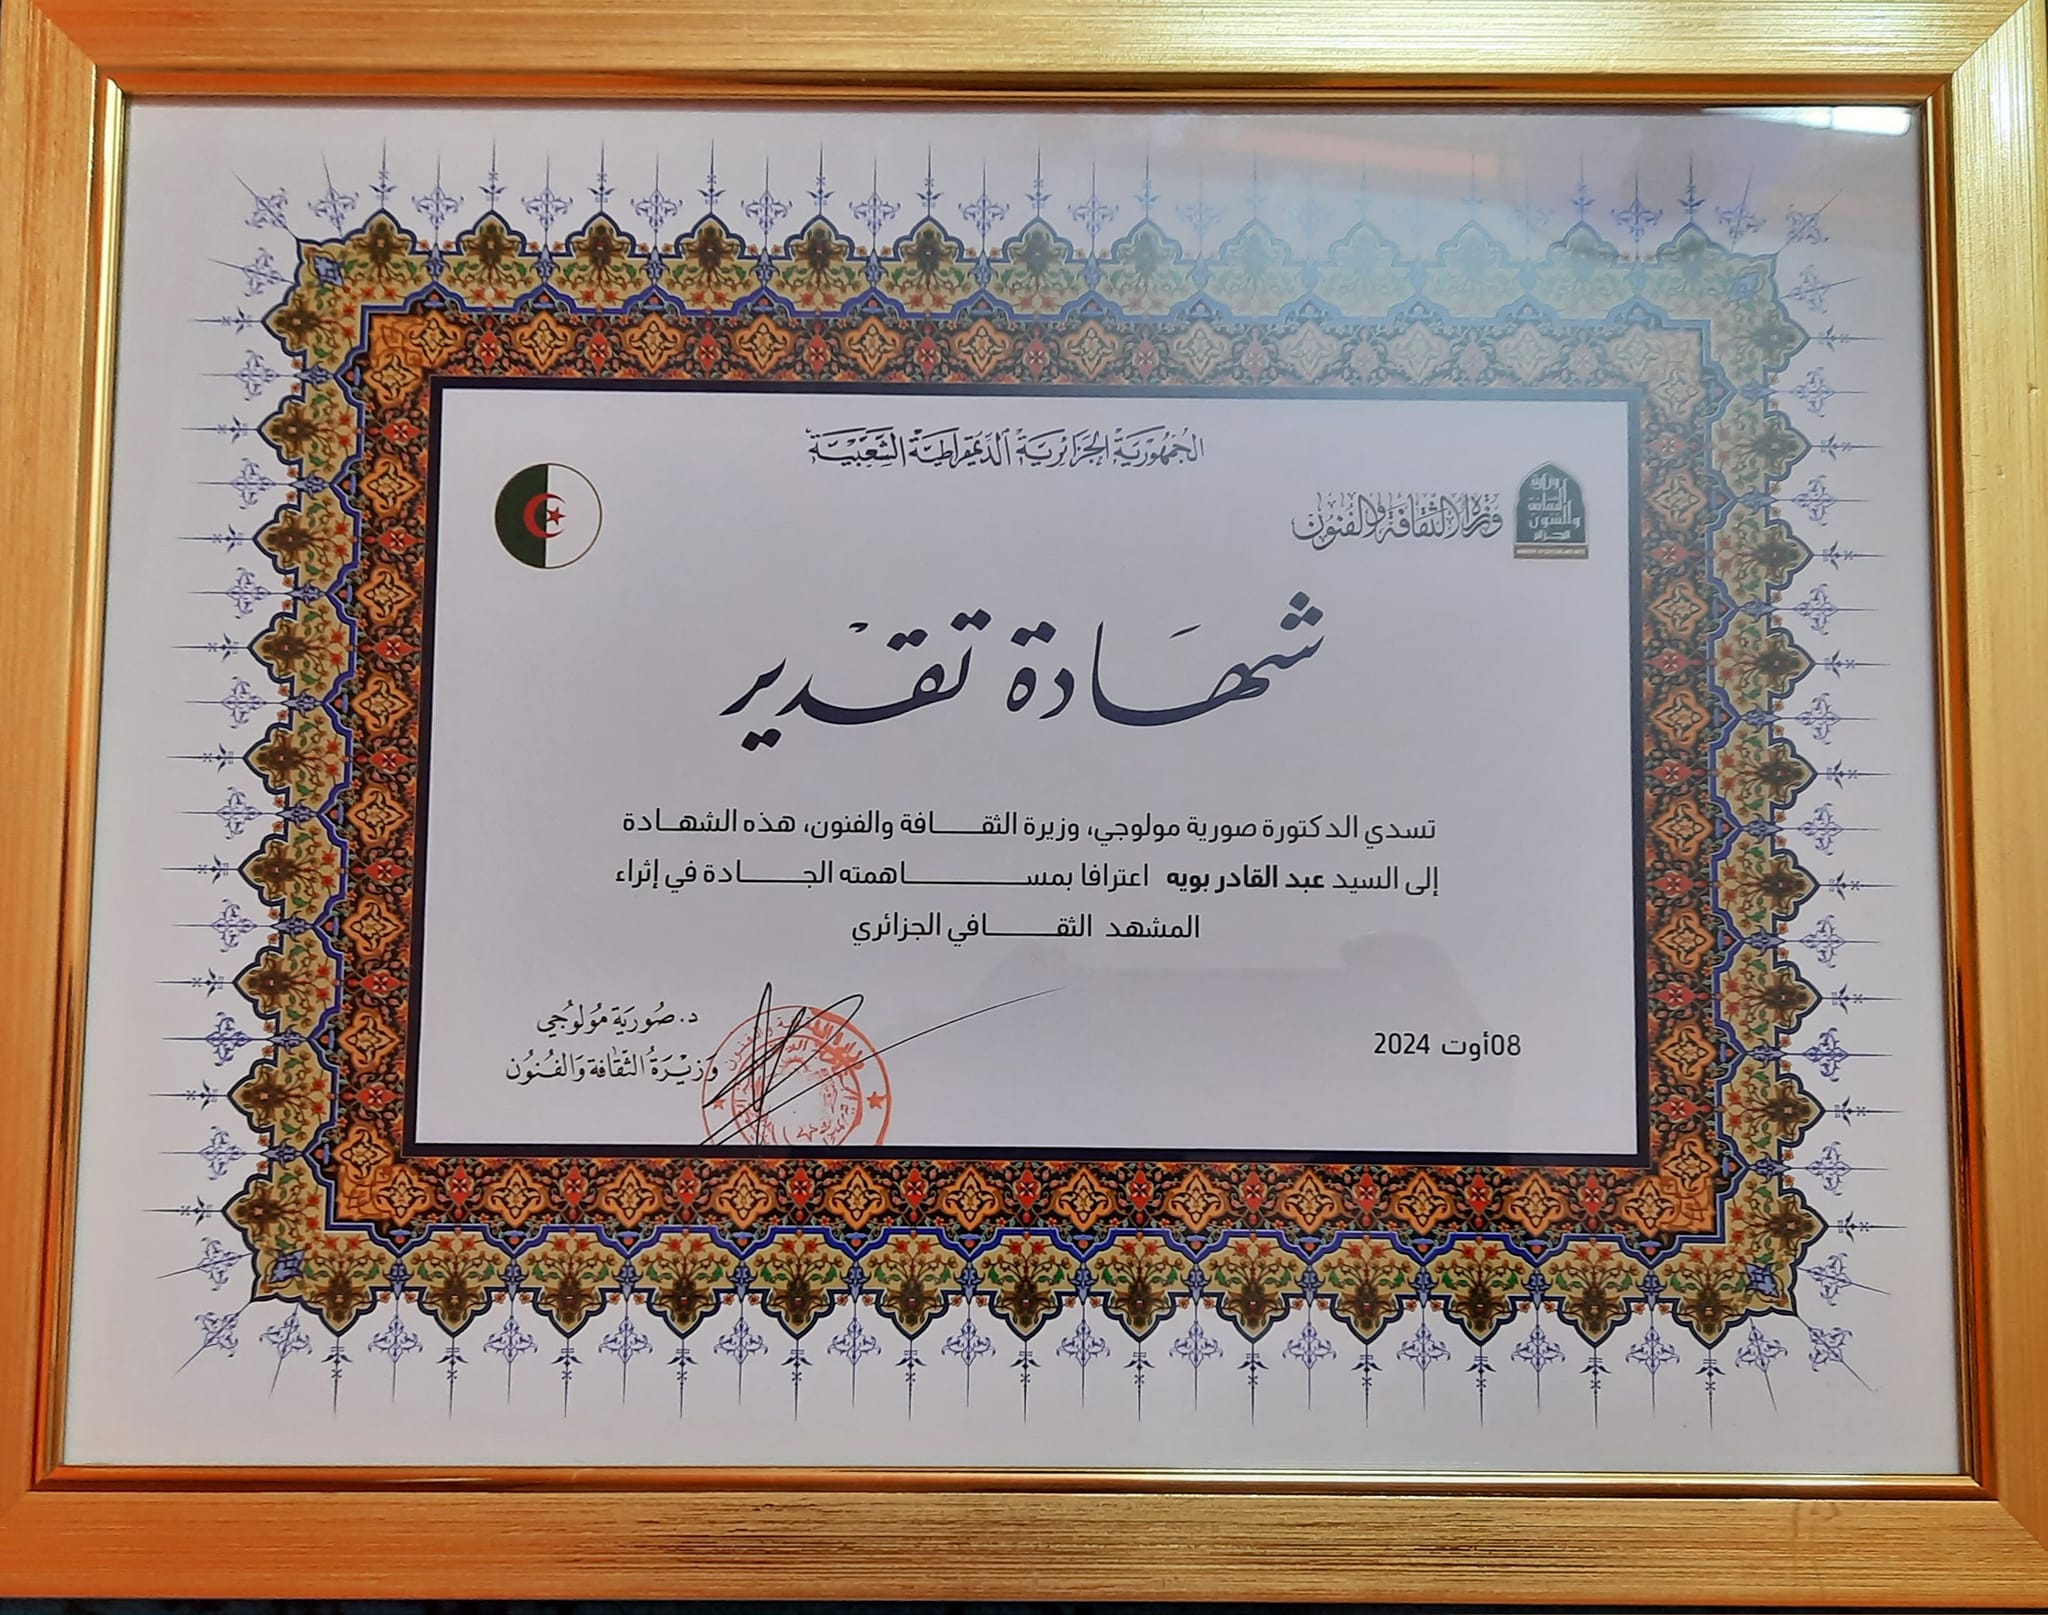 الجُمْهُورِيَّةُ الجَزَائِرِيَّةُ الدِّيمُقْرَاطِيَّةُ الشَّعْبِيَّةُ
وزارة الثقافة والفنون
وزارة
الثقافة
والفنون
الجزائر
شهَادة تقدْير
تسدي الدكتورة صورية مولوجي، وزيرة الثقـــافة والفنون، هذه الشهـادة
إلى السيد عبد القادر بويه اعترافا بمســـــاهمته الجـــادة في إثراء
المشهد الثقـــافي الجزائري
08أوت 2024
د. صُورِيَة مُولُوجِي
وَزِيْرَةُ الثَّقَافَة وَالفُنُون